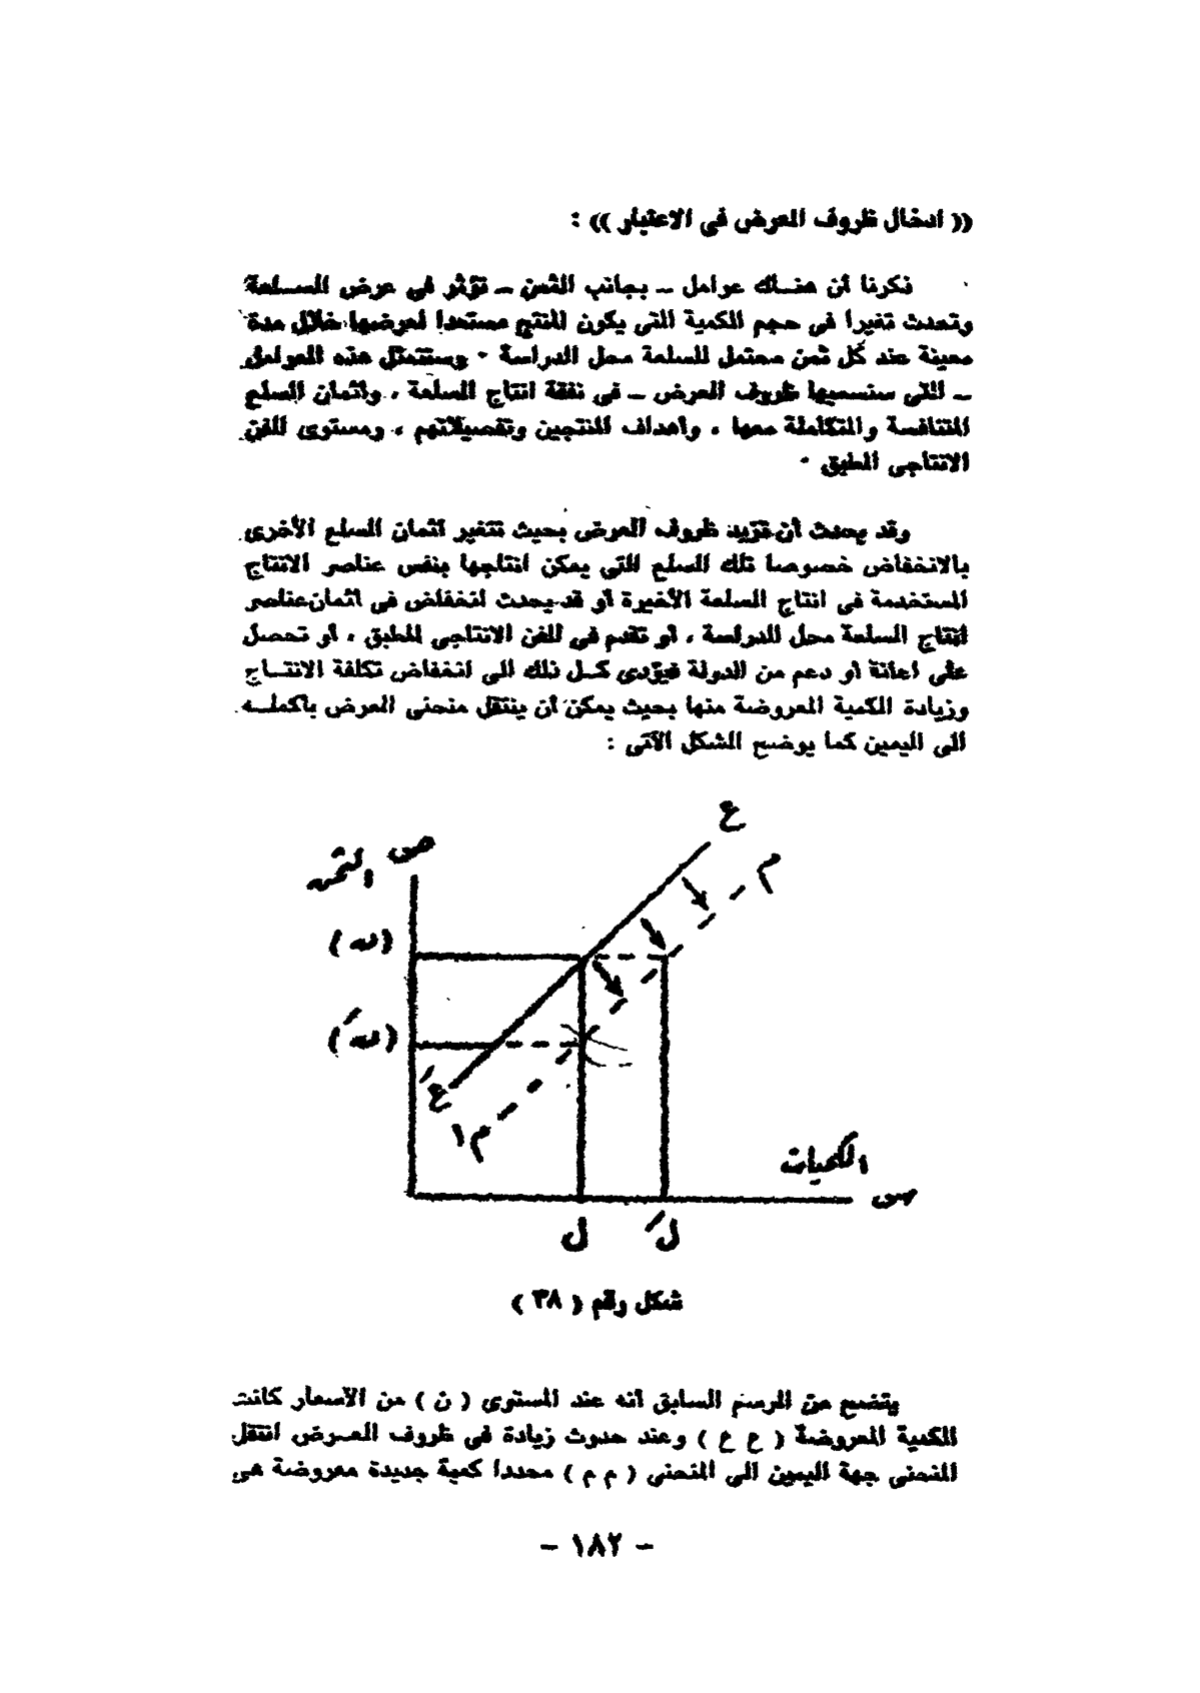 (( ادخال ظروف العرض فى الاعتبار )) :
ذكرنا أن هنــاك عوامل ــ بجانب الثمن ــ تؤثر فى عرض الســلعة
وتحدث تغيرا فى حجم الكمية التى يكون المنتج مستعدا لعرضها خلال مدة
معينة عند كل ثمن محتمل للسلعة محل الدراسة ٠ وستتمثل هذه العوامل
ــ التى سنسميها ظروف العرض ــ فى نفقة انتاج السلعة ، واثمان السلع
المتنافسة والمتكاملة معها ، وأهداف المنتجين وتفضيلاتهم ، ومستوى الفن
الانتاجى المطبق ٠
وقد يحدث أن تزيد ظروف العرض بحيث تتغير اثمان السلع الأخرى
بالانخفاض خصوصا تلك السلع التى يمكن انتاجها بنفس عناصر الانتاج
المستخدمة فى انتاج السلعة الأخيرة أو قد يحدث انخفاض فى اثمان عناصر
انتاج السلعة محل الدراسة ، أو تقدم فى الفن الانتاجى المطبق ، أو تحصل
على اعانة أو دعم من الدولة فيؤدى كــل ذلك الى انخفاض تكلفة الانتــاج
وزيادة الكمية المعروضة منها بحيث يمكن أن ينتقل منحنى العرض بأكملــه
الى اليمين كما يوضح الشكل الآتى :
ع
م
ص
الثمن
(ن)
(نَ)
عَ
م١
الكميات
س
ل
لَ
شكل رقم ( ٣٨ )
يتضح من الرسم السابق أنه عند المستوى ( ن ) من الأسعار كانت
الكمية المعروضة ( ع ع ) وعند حدوث زيادة فى ظروف العــرض انتقل
المنحنى جهة اليمين الى المنحنى ( م م ) محددا كمية جديدة معروضة هى
– ١٨٢ –